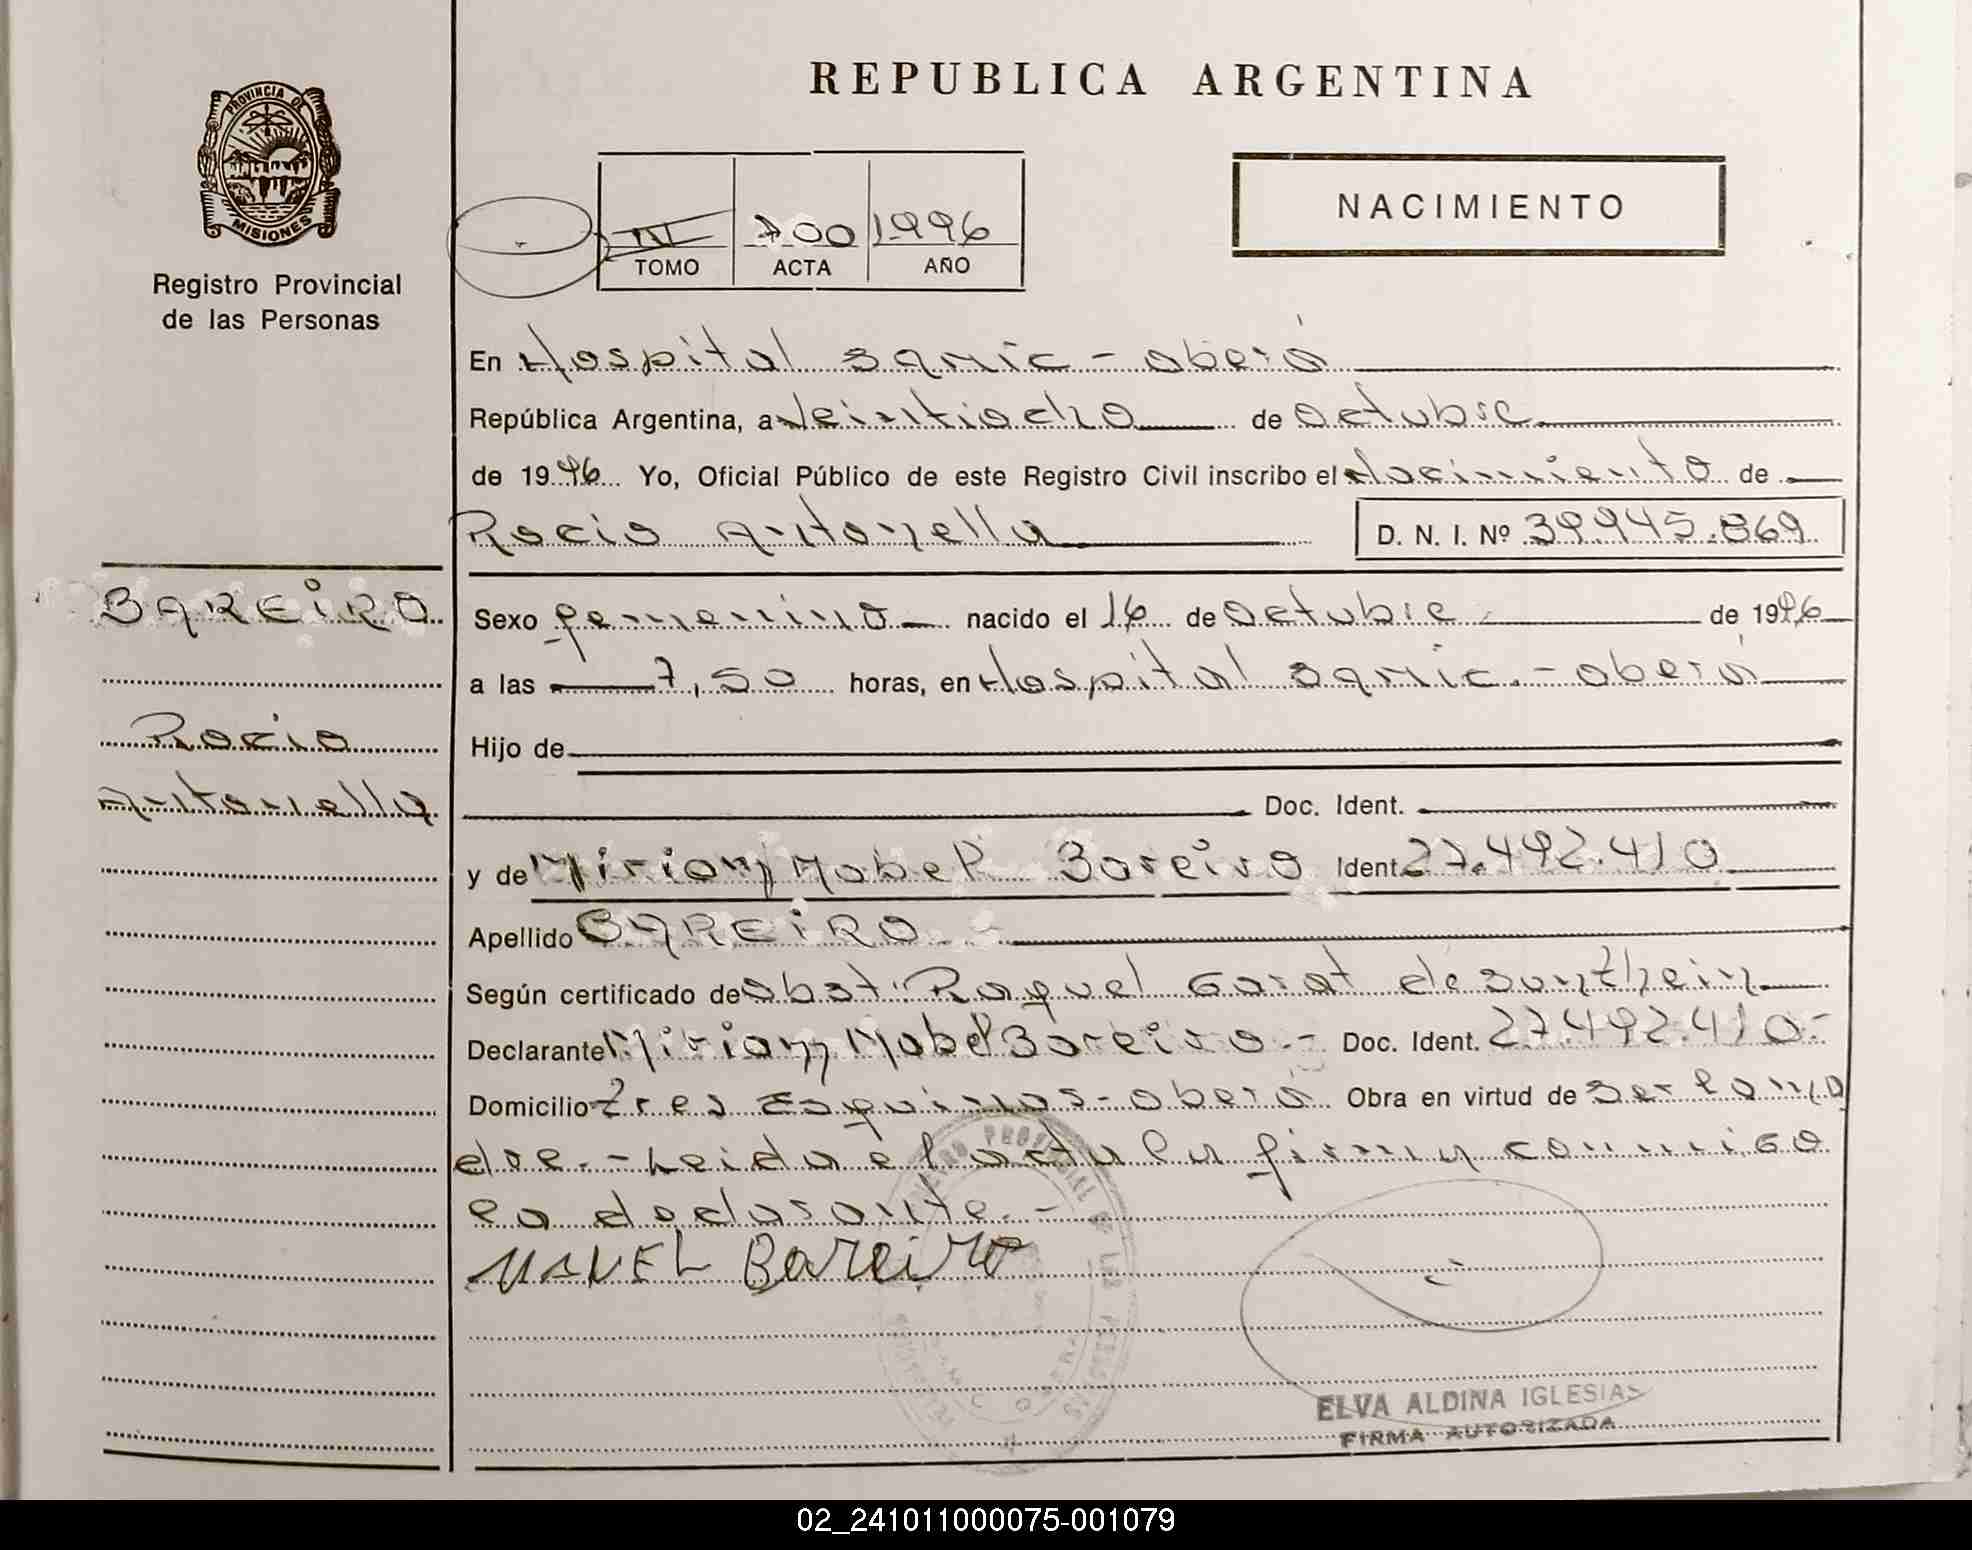 REPUBLICA ARGENTINA
PROVINCIA DE
MISIONES
Registro Provincial
de las Personas
NACIMIENTO
IV 700 1996
TOMO ACTA AÑO
En Hospital Samic - oberá
República Argentina, a Veintiocho de octubre
de 1996 Yo, Oficial Público de este Registro Civil inscribo el Nacimiento de
Rocio Antonella D. N. I. Nº 39.945.869
BAREIRO
Rocio
Antonella
Sexo femenino nacido el 16 de octubre de 1996
a las 7,50 horas, en Hospital Samic.- oberá
Hijo de
Doc. Ident.
y de Miriam Mabel Bareiro Ident. 27.492.410
Apellido BAREIRO -
Según certificado de obst. Raquel Garat de Sontheim
Declarante Miriam Mabel Bareiro.- Doc. Ident. 27.492.410-
Domicilio Tres Esquinas - oberá Obra en virtud de ser la ma
dre.- Leida el acta la firma conmigo
la declarante.-
MAVEL Bareiro
ELVA ALDINA IGLESIAS
FIRMA AUTORIZADA
02_241011000075-001079